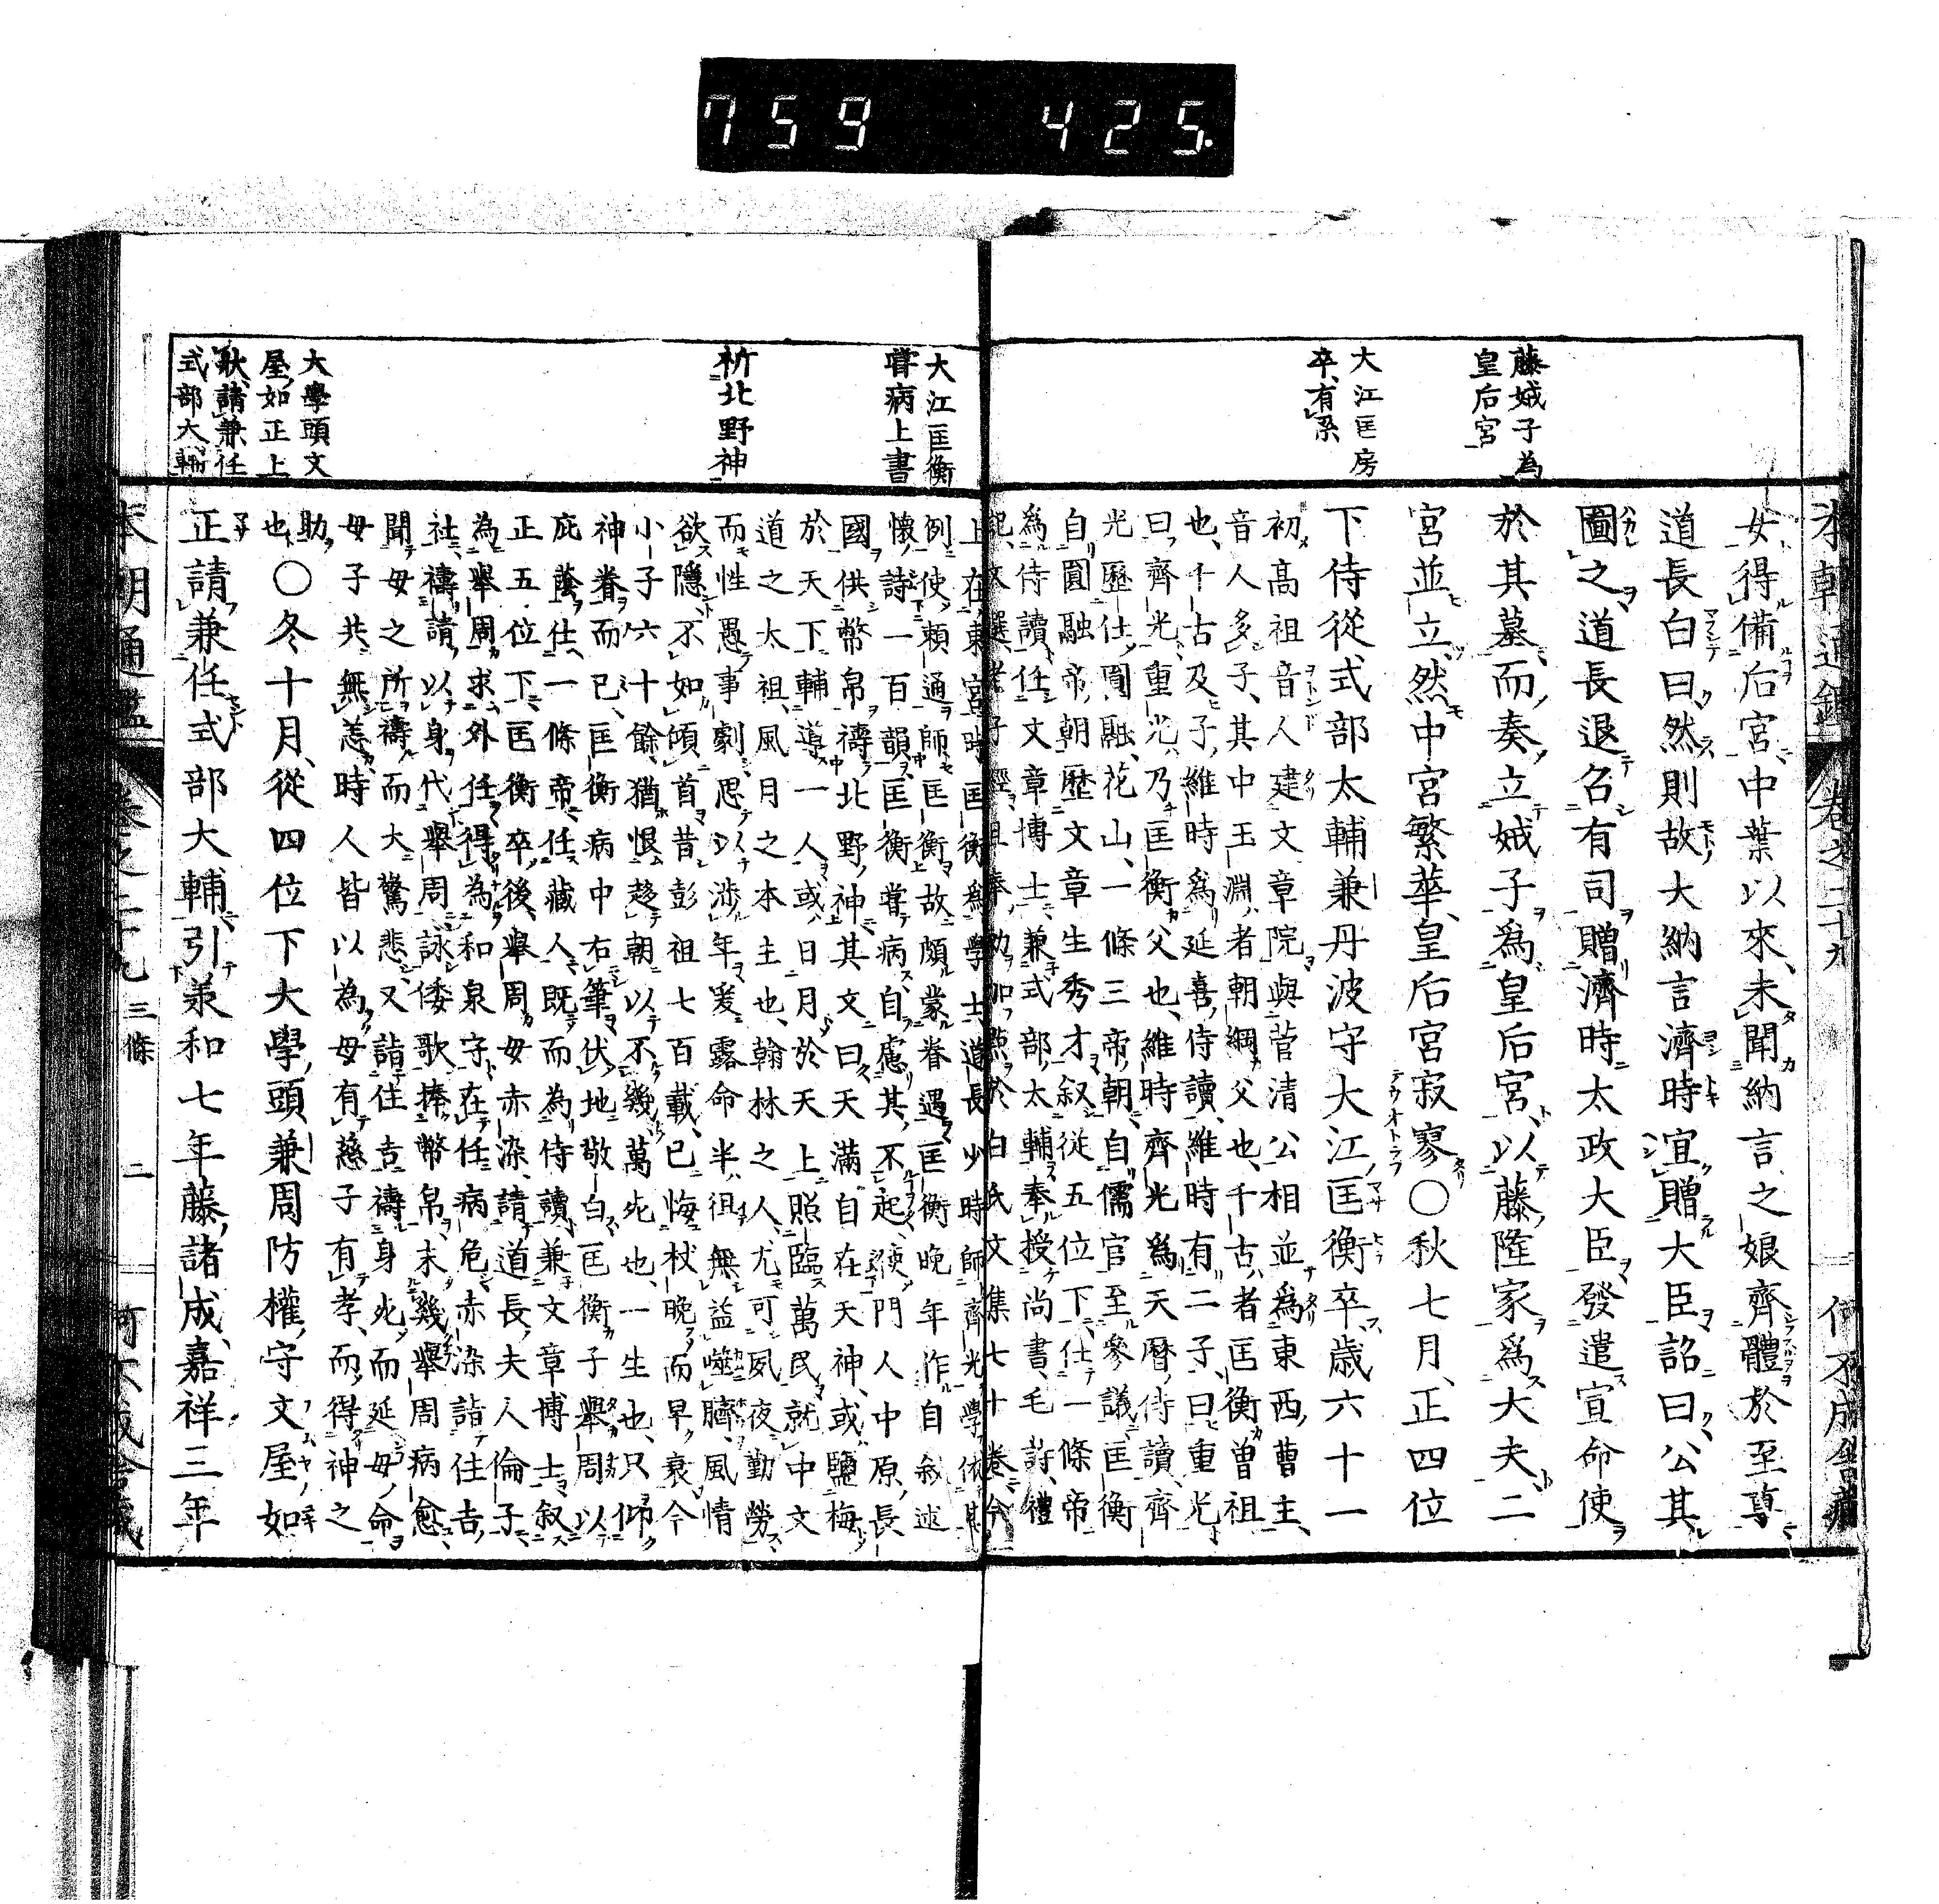 759 425.
本朝通鑑 卷之二十九
藤娍子為
皇后宮
大江匡房
卒有系
女得備后宮中葉以來未聞納言之娘齊體於至尊
道長白曰然則故大納言濟時宜贈大臣詔曰公其
圖之道長退召有司贈濟時太政大臣發遣宣命使
於其墓而奏立娍子為皇后宮以藤隆家爲大夫二
宮並立然中宮繁華皇后宮寂寥〇秋七月正四位
下侍從式部太輔兼丹波守大江匡衡卒歲六十一
初高祖音人建文章院與菅清公相並爲東西曹主
音人多子其中玉淵者朝綱父也千古者匡衡曽祖
也千古及子維時爲延喜侍讀維時有二子曰重光
曰齊光重光乃匡衡父也維時齊光爲天曆侍讀齊
光歷仕圓融花山一條三帝朝自儒官至參議匡衡
自圓融帝朝歷文章生秀才叙從五位下仕一條帝
爲侍讀任文章博士兼式部太輔奉授尚書毛詩禮
記文選老子經且奉勅加點於白氏文集七十卷今
大江匡衡
嘗病上書
祈北野神
大學頭文
屋如正上
狀請兼任
式部大輔
上在東宮時匡衡爲學士道長少時師齊光學依其
例使頼通師匡衡故頗蒙眷遇匡衡晚年作自叙述
懷詩一百韻匡衡嘗病自慮其不起使門人中原長
國供幣帛禱北野神其文曰天滿自在天神或鹽梅
於天下輔導一人或日月於天上照臨萬民就中文
道之太祖風月之本主也翰林之人尤可夙夜勤勞
而性愚事劇思以渉年爰露命半徂無益噬臍風情
欲隱不如傾首昔彭祖七百載已悔杖晚而早衰今
小子六十餘猶恨趍朝以不幾萬死也一生也只仰
神眷而已匡衡病中右筆伏地敬白匡衡子舉周以
庇蔭仕一條帝任藏人既而為侍讀兼文章博士叙
正五位下匡衡卒後舉周母赤染請道長夫人倫子
為舉周求外任得為和泉守在任病危赤染詣住吉
社禱請以身代舉周詠倭歌捧幣帛未幾舉周病愈
聞母之所禱而大驚悲又詣住吉禱身死而延母命
母子共無恙時人皆以為母有慈子有孝而得神之
助也〇冬十月從四位下大學頭兼周防權守文屋如
正請兼任式部大輔引承和七年藤諸成嘉祥三年
本朝通鑑 卷之二十九 三條 二